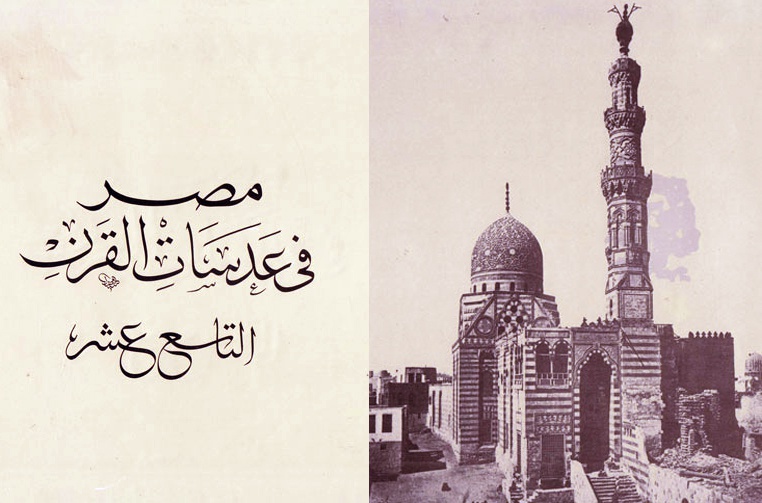 مصر
في عَدسَاتِ القرنِ
التاسع عشر